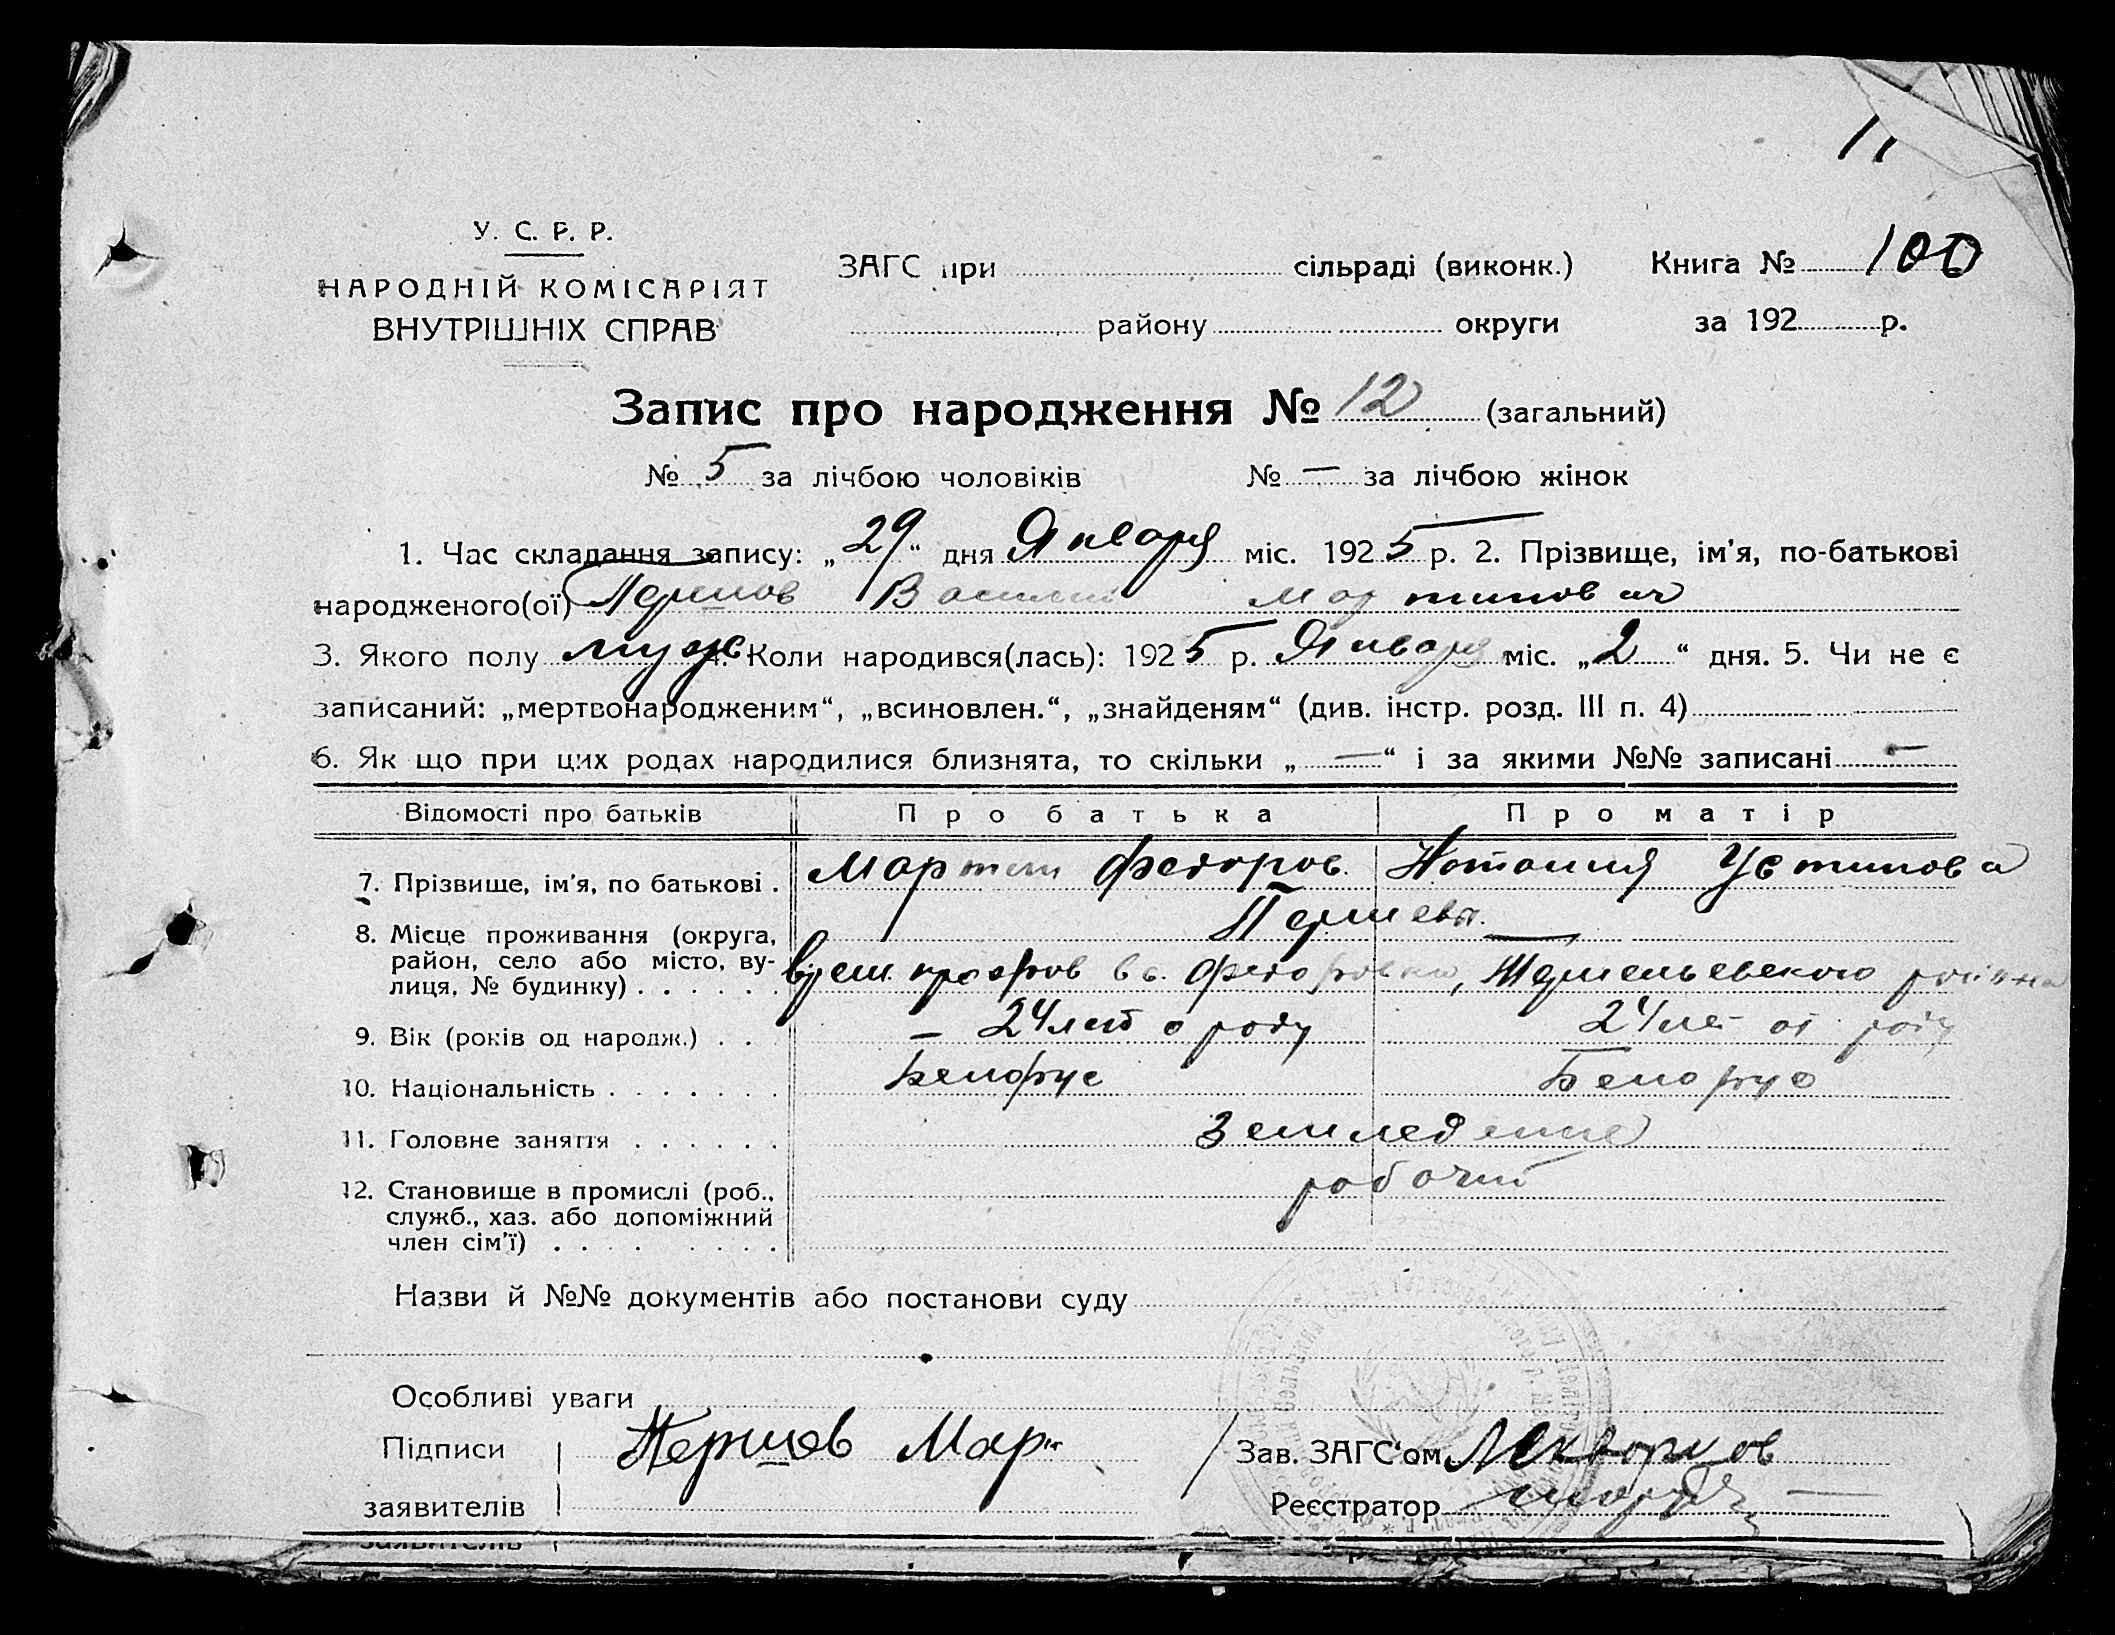 11
У. С. Р. Р.
НАРОДНІЙ КОМІСАРІЯТ
ВНУТРІШНІХ СПРАВ
ЗАГС при сільраді (виконк.)
району округи
Книга № 100
за 192 р.
Запис про народження № 12 (загальний)
№ 5 за лічбою чоловіків № — за лічбою жінок
1. Час складання запису: „29“ дня Января міс. 1925 р. 2. Прізвище, ім’я, по-батькові
народженого(ої) Першов Василий Мартинович
3. Якого полу муж 4. Коли народився(лась): 1925 р. Января міс. „2“ дня. 5. Чи не є
записаний: „мертвонародженим“, „всиновлен.“, „знайденям“ (див. інстр. розд. III п. 4)
6. Як що при цих родах народилися близнята, то скільки „—“ і за якими №№ записані —
Відомості про батьків Про батька Про матір
7. Прізвище, ім’я, по батькові . Мартин Федоров. Наталия Устинова
Першевы.
8. Місце проживання (округа,
район, село або місто, ву-
лиця, № будинку) . . . . . . прожив в с. Федоровка, района
9. Вік (років од народж.) . . — 24 лет о роду 24 лет от роду
10. Національність . . . . . . . Белорус Белорус
11. Головне заняття . . . . . . Земледелие
12. Становище в промислі (роб.,
служб., хаз. або допоміжний
член сім’ї) . . . . . . . .
рабочий
Назви й №№ документів або постанови суду
Особливі уваги
Підписи Першов Мар
заявителів
Зав. ЗАГС‘ом
Реєстратор
заявителів